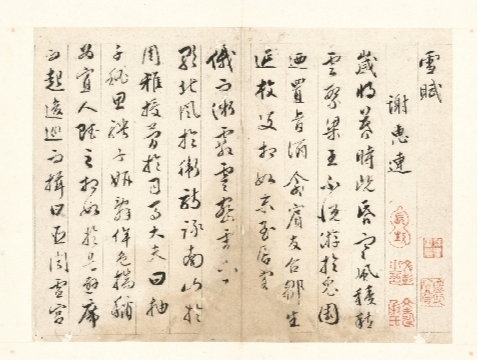 雪賦
謝惠連
歲將暮時既昏寒風積愁
雲繁梁王不悅游於兔園
迺置旨酒命賓友召鄒生
延枚叟相如末至居客
俄而微霰零密雪下
歌北風於衛詩詠南山於
周雅授簡於司馬大夫曰抽
子秘思騁子妍辭侔色揣稱
為寡人賦之相如於是避席
而起逡巡而揖曰臣聞雪宮